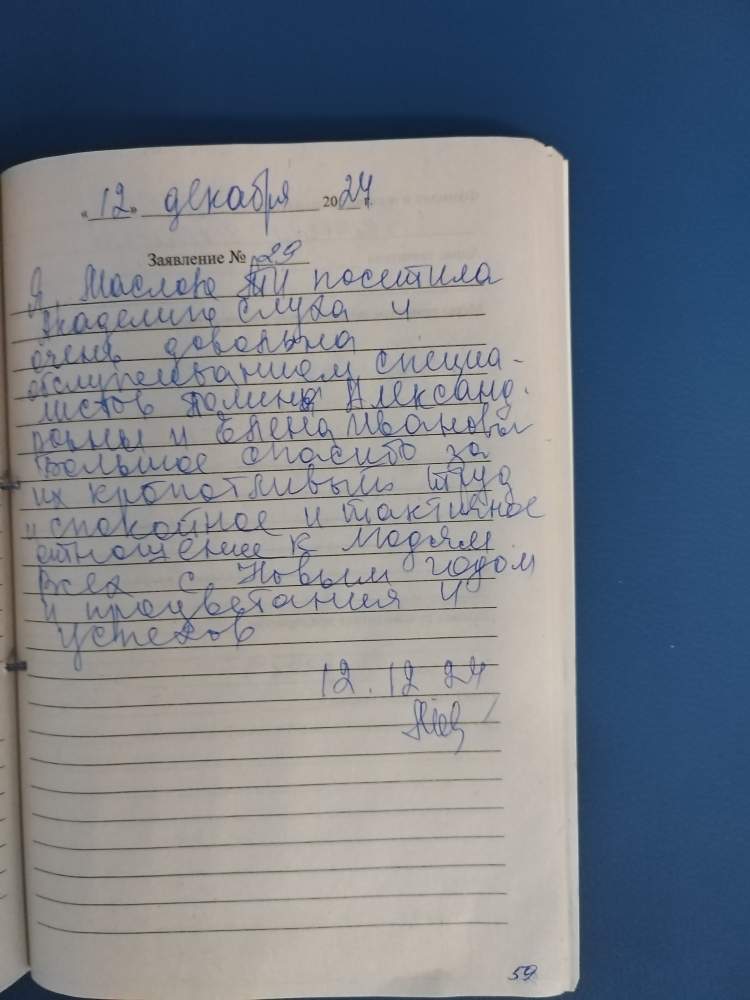 «12» декабря 2024 г.
Заявление № 29
Я, Маслова посетила
Академию слуха и
очень довольна
обслуживанием специа-
листов Полины Александ-
ровны и Елены Ивановы
Большое спасибо за
их кропотливый труд
и спокойное и тактичное
отношение к людям
Всех с Новым годом
и процветания и
успехов
12.12 24
59